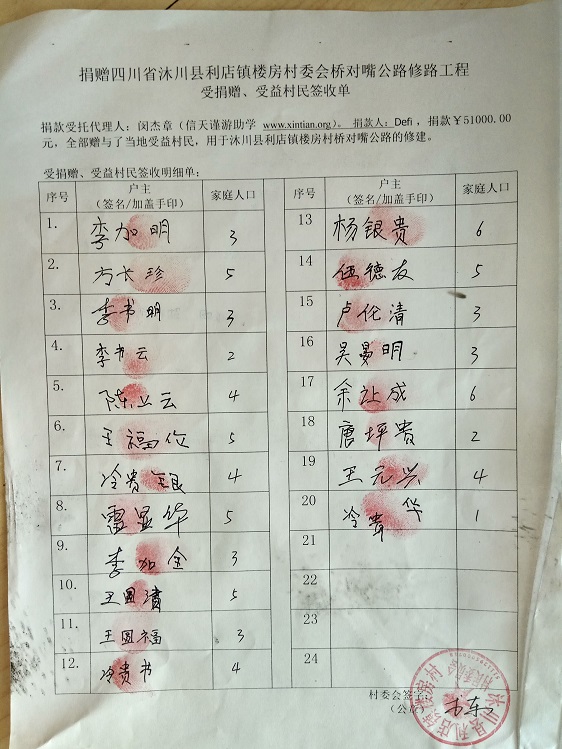 捐赠四川省沐川县利店镇楼房村委会桥对嘴公路修路工程
受捐赠、受益村民签收单
捐款受托代理人：闵杰章（信天谨游助学 www.xintian.org）。捐款人：Defi，捐款￥51000.00
元，全部赠与了当地受益村民，用于沐川县利店镇楼房村桥对嘴公路的修建。
受捐赠、受益村民签收明细单：
序号 户主 （签名/加盖手印） 家庭人口
1. 李加明 3
2. 方长珍 5
3. 李书明 3
4. 李书云 2
5. 陈 云 4
6. 王福 5
7. 冷贵银 4
8. 雷显华 5
9. 李加全 3
10. 王国清 5
11. 王国福 3
12. 冷贵书 4
序号 户主 （签名/加盖手印） 家庭人口
13 杨银贵 6
14 伍德友 5
15 卢伦清 3
16 吴 明 3
17 余让成 6
18 唐坪贵 2
19 王元兴 4
20 冷贵华 1
21
22
23
24
村委会签字：
（公章）
沐川县利店镇楼房村